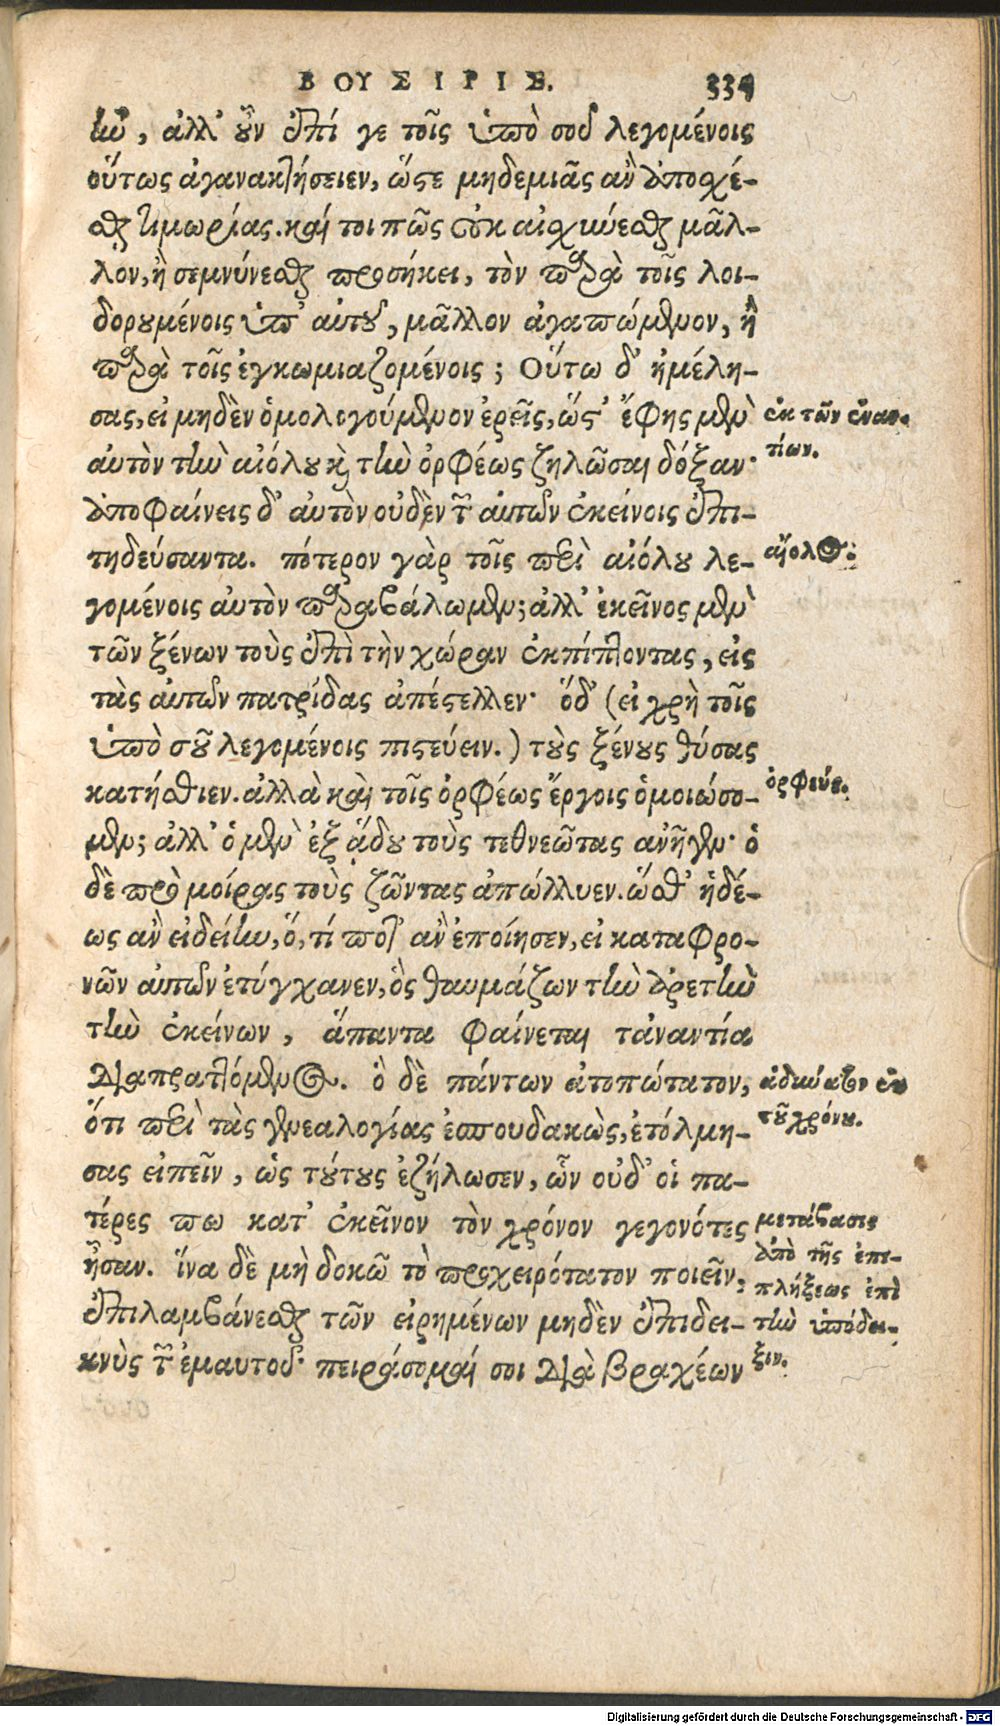 ΒΟΥΣΙΡΙΣ. 339
ἰω, ἀλλ' οὖν ἐπί γε τοῖς ὑπὸ σοῦ λεγομένοις
οὕτως ἀγανακτήσειεν, ὥςε μηδεμιᾶς ἂν ἀποσχέ-
σθαι τιμωρίας. καί τοι πῶς οὐκ αἰσχύνεσθαι μᾶλ-
λον, ἢ σεμνύνεσθαι προσήκει, τὸν παρὰ τοῖς λοι-
δορουμένοις ὑπ' αὐτοῦ, μᾶλλον ἀγαπώμενον, ἢ
παρὰ τοῖς ἐγκωμιαζομένοις; Οὕτω δ' ἠμέλη-
σας, εἰ μηδὲν ὁμολογούμενον ἐρεῖς, ὥς' ἔφης μὲν
ἐκ τῶν ἐναν-
τίων.
αὐτὸν τὴν αἰόλου καὶ τὴν ὀρφέως ζηλῶσαι δόξαν·
ἀποφαίνεις δ' αὐτὸν οὐδὲν τῶν αὐτῶν ἐκείνοις ἐπι-
τηδεύσαντα. πότερον γὰρ τοῖς περὶ αἰόλου λε-
αἴολος.
γομένοις αὐτὸν παραβάλωμεν; ἀλλ' ἐκεῖνος μὲν
τῶν ξένων τοὺς ἐπὶ τὴν χώραν ἐκπίπτοντας, εἰς
τὰς αὐτῶν πατρίδας ἀπέςελλεν· ὅδ' (εἰ χρὴ τοῖς
ὑπὸ σοῦ λεγομένοις πιςεύειν.) τοὺς ξένους θύσας
κατήσθιεν. ἀλλὰ καὶ τοῖς ὀρφέως ἔργοις ὁμοιώσο-
ὀρφεύς.
μεν; ἀλλ' ὁ μὲν ἐξ ᾅδου τοὺς τεθνεῶτας ἀνῆγεν· ὁ
δὲ πρὸ μοίρας τοὺς ζῶντας ἀπώλλυεν. ὥσθ' ἡδέ-
ως ἂν εἰδείην, ὅ, τί ποτ' ἂν ἐποίησεν, εἰ καταφρο-
νῶν αὐτῶν ἐτύγχανεν, ὃς θαυμάζων τὴν ἀρετὴν
τὴν ἐκείνων, ἅπαντα φαίνεται τἀναντία
διαπραττόμενος. ὃ δὲ πάντων ἀτοπώτατον,
ἀδύνατον ἐκ
τοῦ χρόνου.
ὅτι περὶ τὰς γενεαλογίας ἐσπουδακὼς, ἐτόλμη-
σας εἰπεῖν, ὡς τούτους ἐζήλωσεν, ὧν οὐδ' οἱ πα-
τέρες πω κατ' ἐκεῖνον τὸν χρόνον γεγονότες
ἦσαν. ἵνα δὲ μὴ δοκῶ τὸ προχειρότατον ποιεῖν,
ἐπιλαμβάνεσθαι τῶν εἰρημένων μηδὲν ἐπιδει-
κνὺς τῶν ἐμαυτοῦ· πειράσομαί σοι διὰ βραχέων
μετάβασις
ἀπὸ τῆς ἐπι-
πλήξεως ἐπὶ
τὴν ὑπόδει-
ξιν.
Digitalisierung gefördert durch die Deutsche Forschungsgemeinschaft - DFG